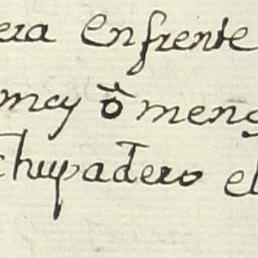 era enfrente
mcy ō meno
chupadero el